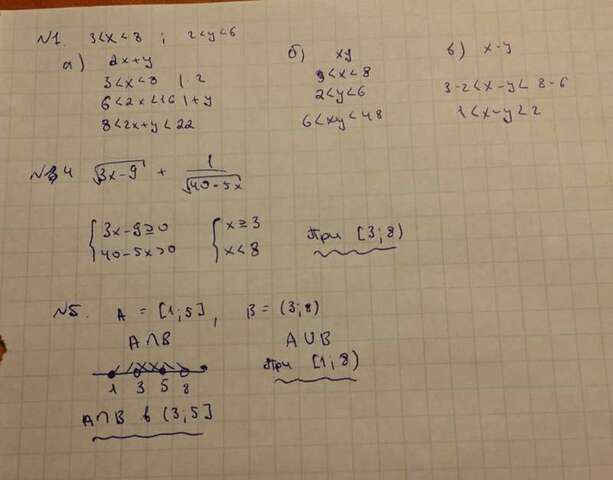 №1. 3<x<8 ; 2<y<6
а) 2x+y
3<x<8 | 2
6<2x<16 | +y
8<2x+y<22
б) xy
3<x<8
2<y<6
6<xy<48
в) x-y
3-2<x-y<8-6
1<x-y<2
№4 √3x-9 + 1/√40-5x
{3x-9≥0
40-5x>0
{x≥3
x<8
При [3;8)
№5. A = [1;5], B = (3;8)
A∩B
1 3 5 8
A∩B в (3;5]
A∪B
При [1;8)